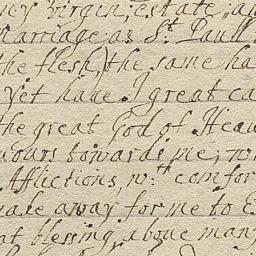 my virgin, estate; a
marriage as St. Paull
the flesh,) the same ha
yet have I great ca
the great God of Heav
vours towards me; w
Afflictions, wth comfor
made away for me to E
at blessing above many